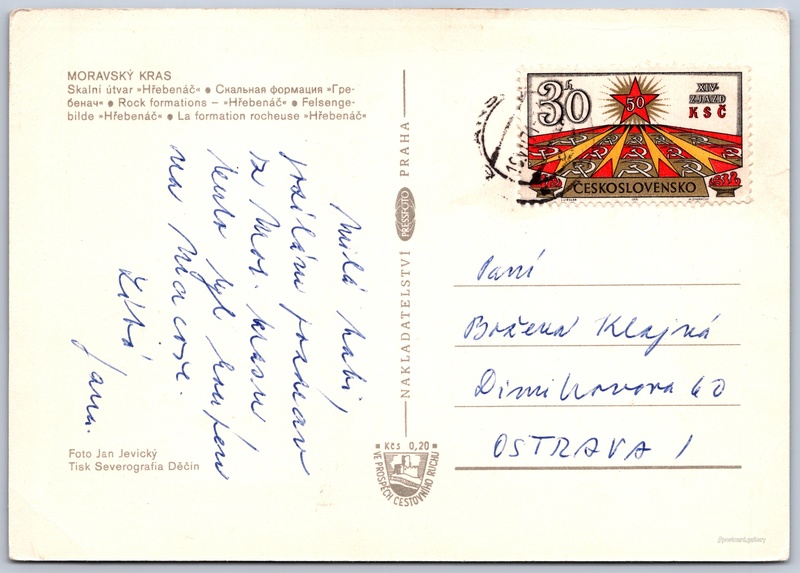 MORAVSKÝ KRAS
Skalní útvar »Hřebenáč« ● Скальная формация »Гре-
бенач« ● Rock formations – »Hřebenáč« ● Felsenge-
bilde »Hřebenáč« ● La formation rocheuse »Hřebenáč«
Milá babi,
posílám pozdrav
z Mor. krasu
tento byl koupen
na Macoše.
Líbá
Jana.
Foto Jan Jevický
Tisk Severografia Děčín
NAKLADATELSTVÍ PRESSFOTO PRAHA
Kčs 0,20
VE PROSPĚCH CESTOVNÍHO RUCHU
30 h
50
XIV.
ZJAZD
KSČ
ČESKOSLOVENSKO
Paní
Božena Klajná
Dimitrovova 60
OSTRAVA 1
@postcard.gallery